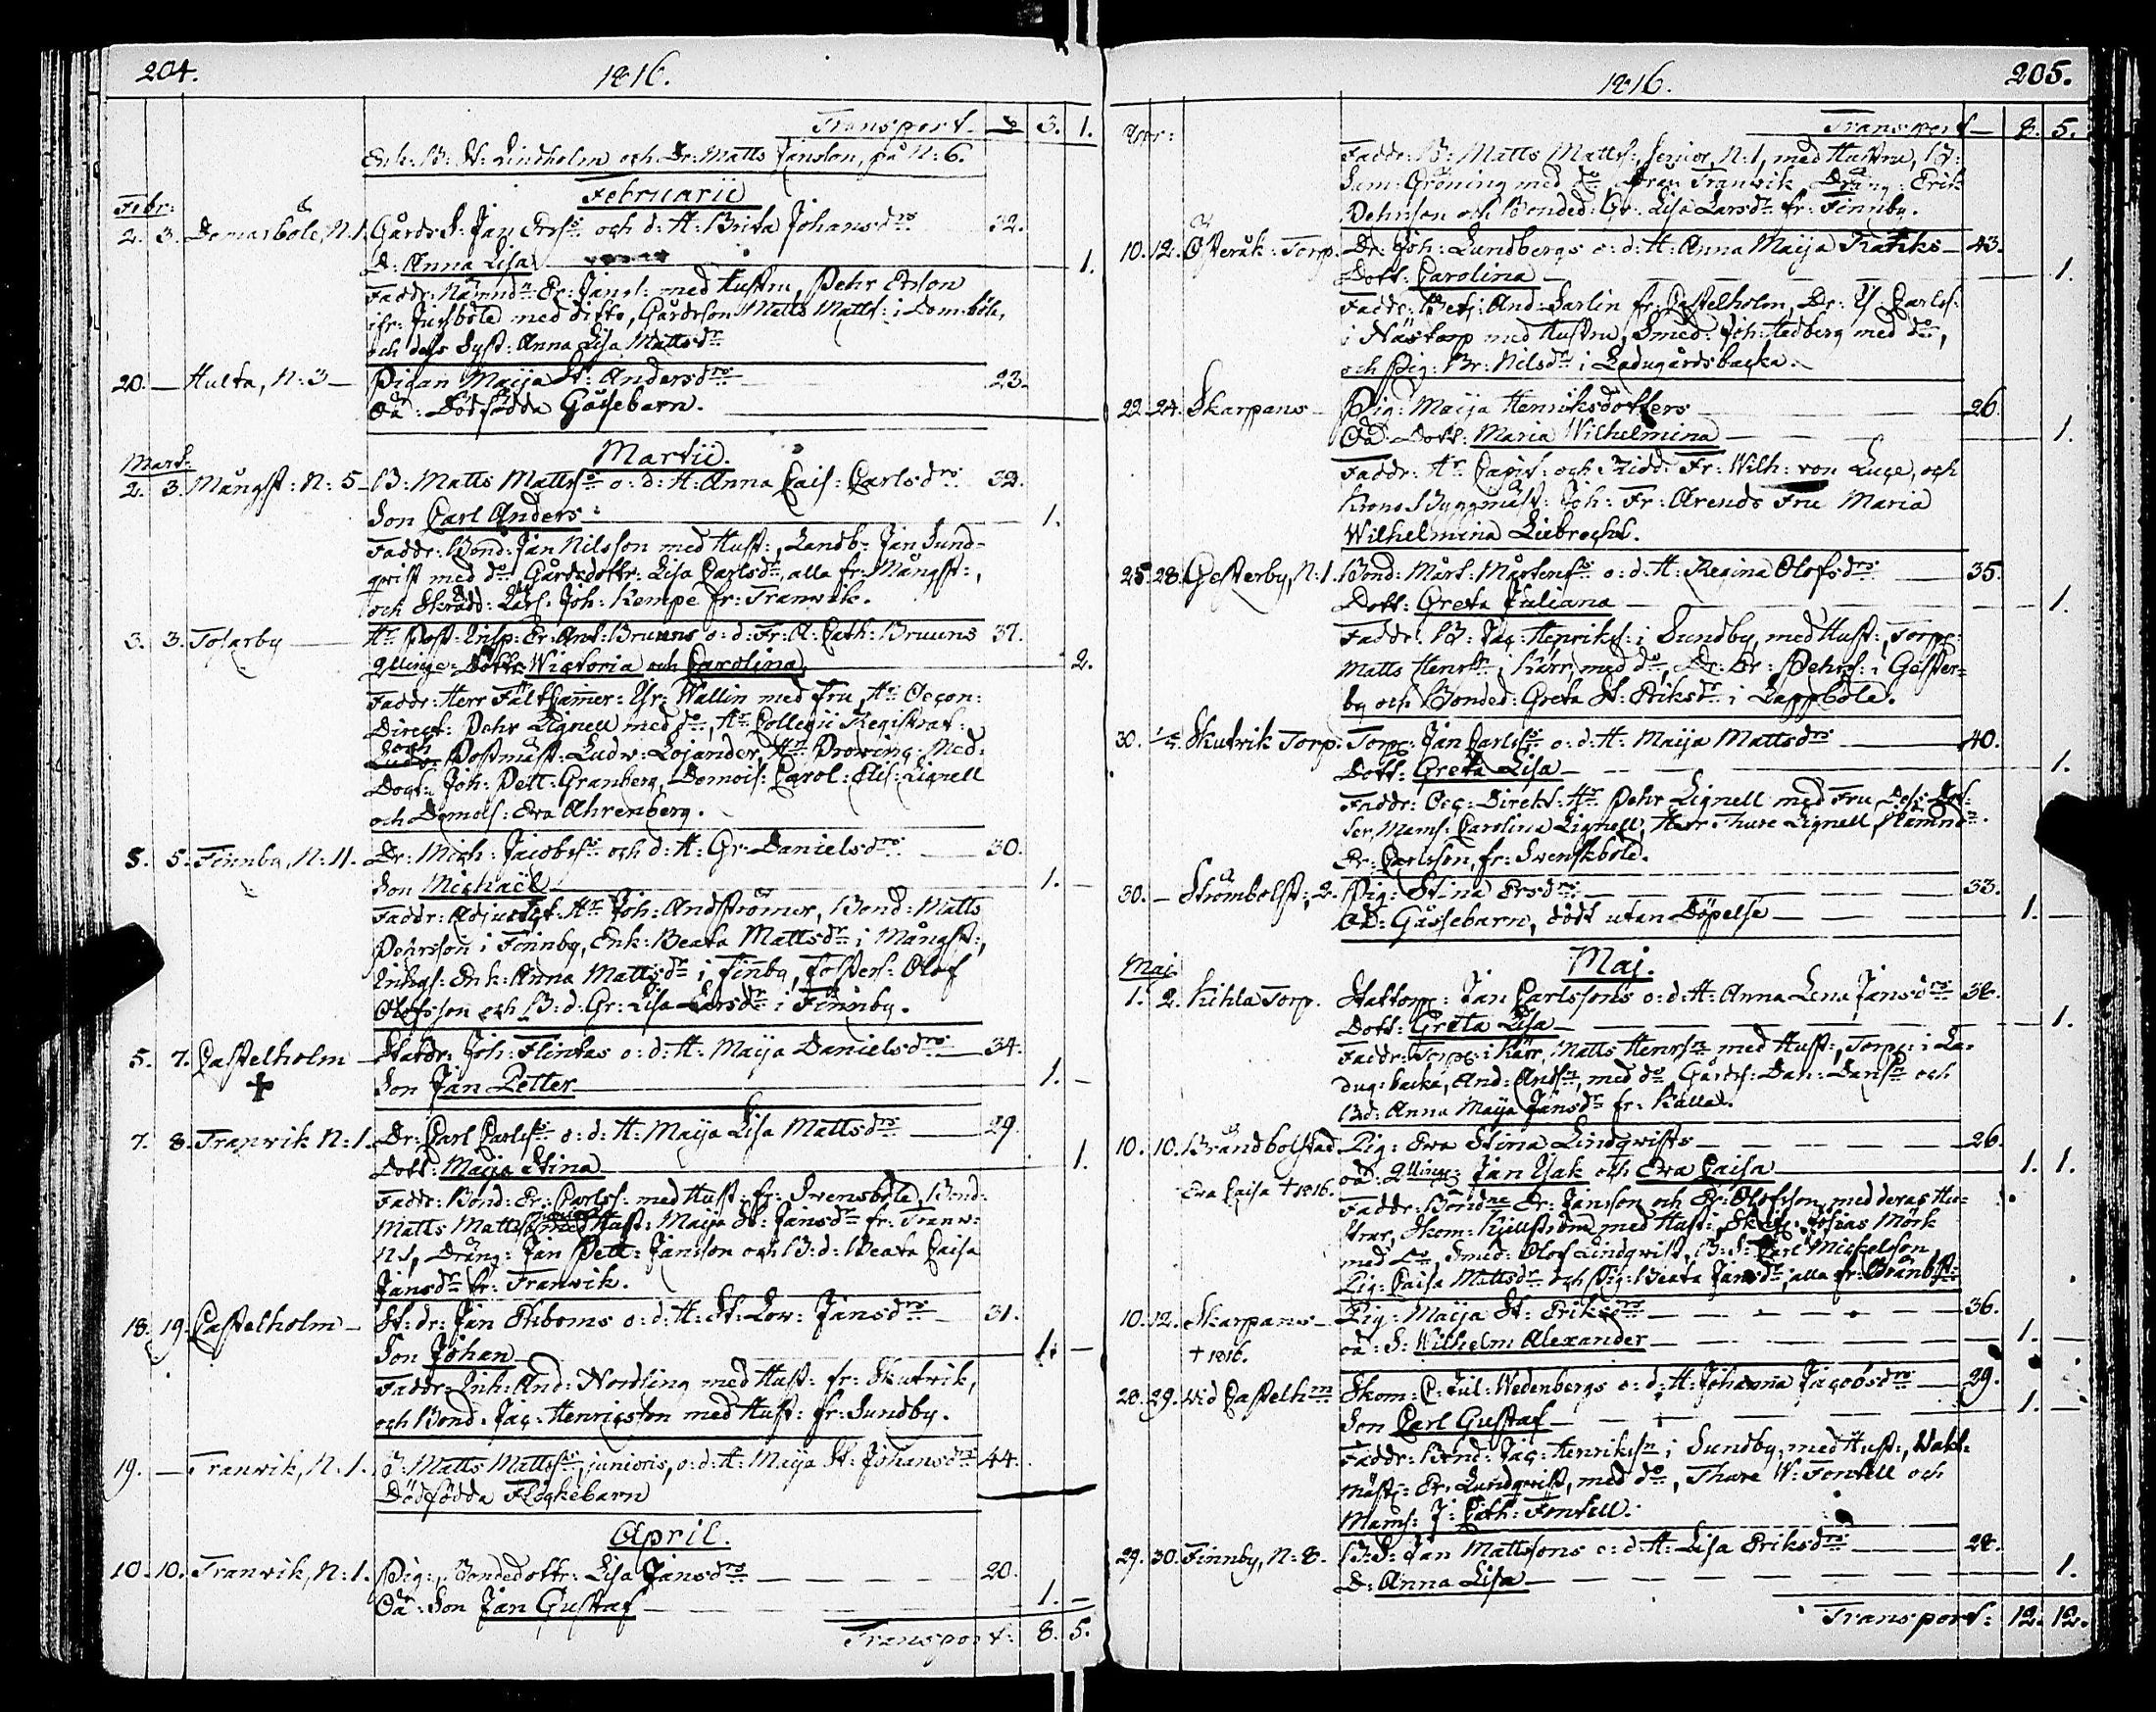 204.
1816.
Transport 3. 1.
Enk: B: St: Lindholm och Dr: Matts Janson, på N: 6.
Februarii
Febr:
2. 3. Domarböle, N. 1. Gårds S: Jan Ersss och d: H: Brita Johansdrs 32.
D: Anna Lisa 1.
Faddr: Nämndn Er: Jansson: med Hustru, Pehr Erson
ifr: Jussböle med ditto, Gårdsson Matts Matts: i Dom:böle,
och dess Syst: Anna Lisa Mattsdr
20. — Hulta, N: 3 — Pigan Maija St: Andersdrs 23.
Oä: Dödfödda Gåssebarn.
Martii.
Mart:
2. 3. Mångst: N: 5 B: Matts Mattss o: d: H: Anna Cais: Carlsdrs 32.
Son Carl Anders 1.
Faddr: Bond: Jan Nilsson med Hust:, Landb: Jan Sund-
qvist med do Gårdsdottr: Lisa Carlsdr, alla fr: Mångst:,
och Skrädd: Lärl: Joh: Kempe fr: Tranvik.
3. 3. Tosarby Hr Post: Insp: Er: Ant: Bruuns o: d: Fr: A: Cath: Bruuns 37.
Tllinge: Döttr: Wictoria och Carolina 2.
Faddr: Herr Fältkamer: Gr: Wallin med Fru, Hr Oecon:
Direct: Pehr Lignell med do, Hr Collegii Registrat:
och Postmäst: Ludv: Lojander, Hr Provinc: Med:
Doct: Joh: Pett: Granberg, Demois: Carol: Elis: Lignell
och Demois: Eva Ahrenberg.
5. 5. Finnby, N: 11. Dr: Mich: Jacobsss och d: H: Gr: Danielsdrs 30.
Son Michaël 1. —
Faddr: Adjunct: Hr Joh: Andströmer, Bond: Matts
Pehrsson i Finnby, Enk: Beata Mattsdr i Mångst:,
Inhys: Enk: Anna Mattsdr i Finby, Fosters: Olof
Olofsson och B: d: Gr: Lisa Larsdr i Finnby.
5. 7. Castelholm Statdr: Joh: Flintas o: d: H: Maija Danielsdrs 34.
Son Jan Petter 1. —
7. 8. Tranvik N: 1. Dr: Carl Carlsss o: d: H: Maija Lisa Mattsdrs 29.
Dott: Maija Stina 1.
Faddr: Bond: Er: Carls: med Hust: fr: Svensböle, Bond:
Matts Matts: med Hust: Maija St: Jansdr fr: Tranv:
N 1, Dräng: Jan Pett: Jansson och B: d: Beata Caisa
Jansdr fr: Tranvik.
18. 19. Castelholm St: dr: Jan Ekboms o: d: H: St: Lov: Jansdrs 31.
Son Johan 1. —
Faddr: Inh: And: Nordling med Hust: fr: Skutvik,
och Bond: Jac: Henricsson med Hust: fr: Sundby.
19. — Tranvik, N: 1. B: Matts Mattsss, junioris, o: d: H: Maija St: Johansdrs 44.
Dödfödda Flickebarn
April.
10. 10. Tranvik, N: 1. Pig:, Bondedottr: Lisa Jansdrs 20.
Oä: Son Jan Gustaf 1. —
Transport: 8. 5.
1816.
205.
Transport 8. 5.
Apr: Faddr: B: Matts Matts:, Senior, N: 1, med Hustru, B:
Sam: Gröning med do från Tranvik Dräng: Erik
Pehrson och Bonded: Gr: Lisa Larsdr fr: Finnby.
10. 12. Överåk: Torp. Dr: Joh: Lundbergs o: d: H: Anna Maija Franks 43.
Dott: Carolina 1.
Faddr: Betj: And: Sarlin fr: Castelholm, Dr: Is: Carls:
i Nästorp med Hustru, Smed: Joh: Hedberg med do,
och Pig: Br: Nilsdr i Ladugårdsbacka.
22. 24. Skarpans Pig: Maija Henriksdotters 26.
Oä: Dott: Maria Wilhelmina 1.
Faddr: Hr Capit: och Ridd: Fr: Wilh: von Luce, och
Krono Byggmäst: Joh: Fr: Arends Fru Maria
Wilhelmina Liebrecht.
25. 28. Gesterby, N: 1. Bond: Mårt: Mårtensss o: d: H: Regina Olofsdrs 35.
Dott: Greta Juliana 1.
Faddr: B: Jac: Henriks: i Sundby, med Hust:, Torp:
Matts Henrsn i Kärr, med do, Dr: Er: Pehrs: i Gester-
by och Bonded: Greta St: Eriksdr i Lappböle.
30. 1/5. Skutvik Torp. Torp: Jan Carlsss o: d: H: Maija Mattsdrs 40.
Dott: Greta Lisa 1.
Faddr: Oec: Direkt: Hr Pehr Lignell med Fru, Des: Dot-
ter, Mams: Carolina Lignell, Herr Thure Lignell, Nämndn
Er: Carlsson, fr: Svenskböle.
30. — Strömbolst:, 2. Pig: Stina Ersdrs 33.
Oä: Gåssebarn, dödt utan Döpelse 1. —
Maj.
Maj
1. 2. Kihla Torp. Stattorp: Jan Carlssons o: d: H: Anna Lena Jansdrs 32.
Dott: Greta Lisa 1.
Faddr: Torp: i Kärr, Matts Henrsn med Hust:, Torp: i La-
dug: backa, And: Andsn, med do Gårds: Dan: Dansn och
Bd: Anna Maija Jansdr fr: Kalla.
10. 10. Brändbolstad Pig: Eva Stina Lindqvists 26.
Eva Caisa † 1816. oä: Tlling: Jan Isak och Eva Caisa 1. 1.
Faddr: Bönderne Er: Jansson och Er: Olofsson med deras Hu-
strur, Skom: Kjellström med Hust:, Skepp: Josias Mörk
med do Smed: Olof Lindqvist, B: S: Carl Mickelson,
Pig: Caisa Mattsdr och Pig: Beata Jansdr, alla fr: Brändbst:
10. 12. Skarpans Pig: Maija St: Eriksdrs 36.
† 1816. oä: S: Wilhelm Alexander 1. —
28. 29. vid Castelhm Skom: C: Jul: Wedenbergs o: d: H: Johanna Jacobsdrs 29.
Son Carl Gustaf 1. —
Faddr: Bond: Jac: Henrikssn i Sundby, med Hust:, Vakt-
mäst: Er: Lundqvist, med do, Thure W: Fontell och
Mams: J: Cath: Fontell.
29. 30. Finnby, N: 8. B: S: Jan Mattssons o: d: H: Lisa Eriksdrs 28.
D: Anna Lisa 1.
Transport: 12. 12.